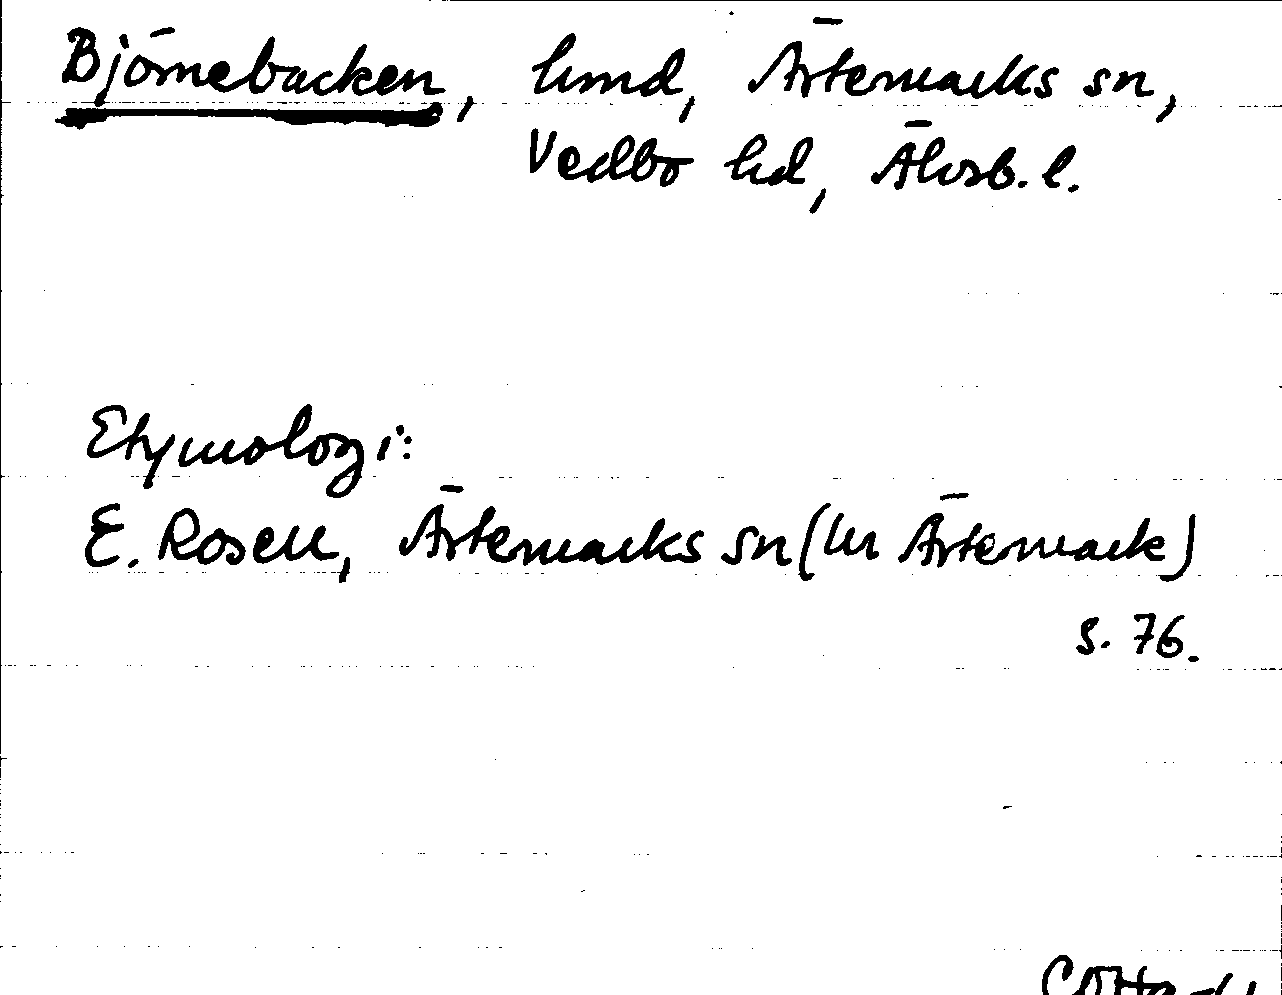 Björnebacken, hmd, Ärtemarks sn,
Vedbo hd, Älvsb. l.
Etymologi:
E. Rosell, Ärtemarks sn (hr Ärtemark)
s. 76.